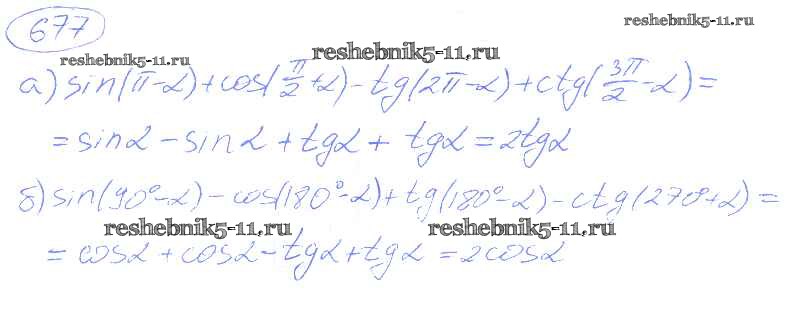 677
reshebnik5-11.ru
reshebnik5-11.ru
reshebnik5-11.ru
а) sin(π-α)+cos(π/2+α)-tg(2π-α)+ctg(3π/2-α)=
=sinα-sinα+tgα+tgα=2tgα
б) sin(90°-α)-cos(180°-α)+tg(180°-α)-ctg(270°+α)=
reshebnik5-11.ru
reshebnik5-11.ru
=cosα+cosα-tgα+tgα=2cosα